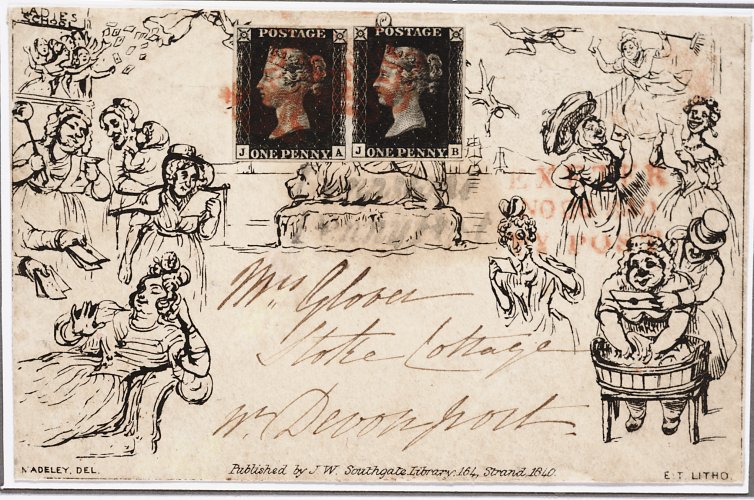 LADIES
SCHOOL
POSTAGE
J ONE PENNY A
POSTAGE
J ONE PENNY B
EXETER
NO
BY POST
Mrs Glover
Stoke Cottage
Nr Devonport
MADELEY, DEL.
Published by J. W. Southgate Library, 164, Strand, 1840.
E.T. LITHO.